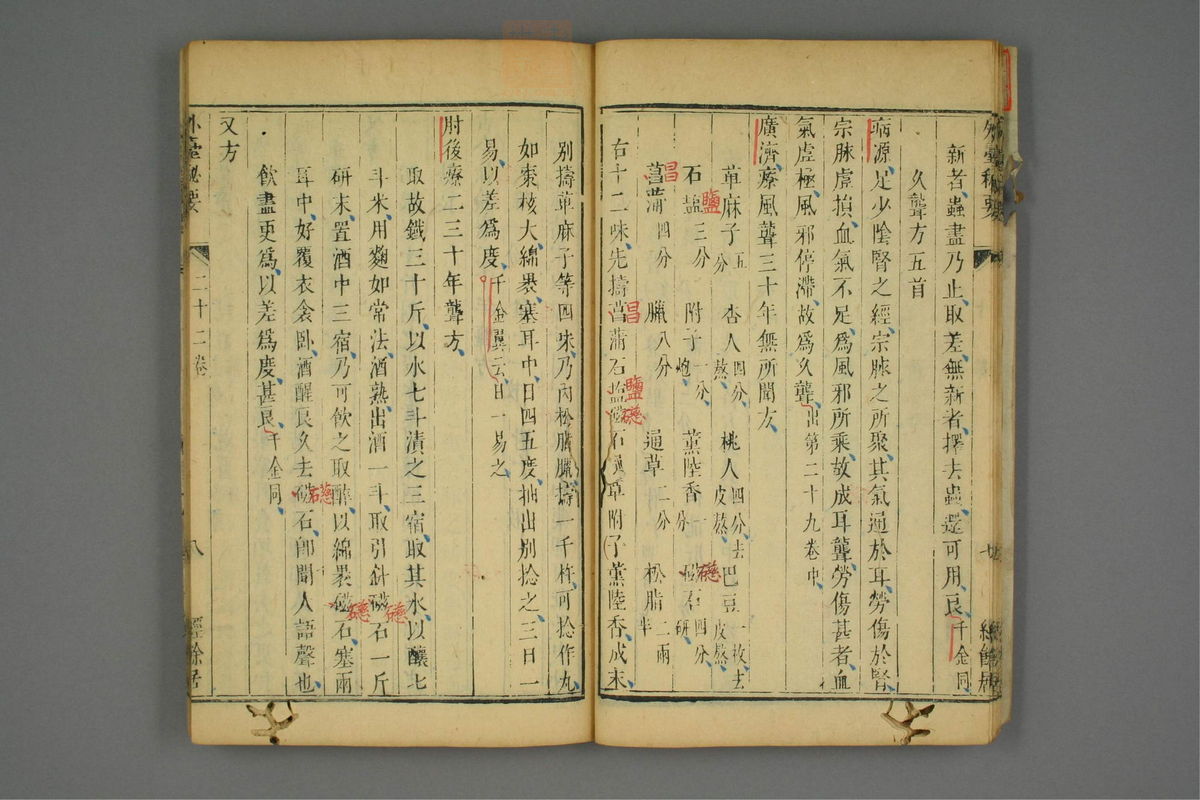 新者蟲盡乃止取差無新者擇去蟲還可用良千金同
久聾方五首
病源足少陰腎之經宗脉之所聚其氣通於耳勞傷於腎
宗脉虛損血氣不足為風邪所乘故成耳聾勞傷甚者血
氣虛極風邪停滯故為久聾出第二十九卷中
廣濟療風聾三十年無所聞方
萆麻子五分 杏人四分熬 桃人四分去皮熬 巴豆一枚去皮熬
石鹽三分 附子一分炮 薰陸香一分 磁石四分研
菖蒲四分 臘八分 通草二分 松脂二兩半
右十二味先擣菖蒲石鹽磁石通草附子薰陸香成末
別擣萆麻子等四味乃內松脂臘擣一千杵可捻作丸
如棗核大綿裹塞耳中日四五度抽出別捻之三日一
易以差為度千金翼云日一易之
肘後療二三十年聾方
取故鐵三十斤以水七斗漬之三宿取其水以釀七
斗米用麴如常法酒熟出酒一斗取引針磁石一斤
研末置酒中三宿乃可飲之取醉以綿裹磁石塞兩
耳中好覆衣衾臥酒醒良久去磁石即聞人語聲也
飲盡更為以差為度甚良千金同
又方
外臺秘要
二十二卷
八
經餘居